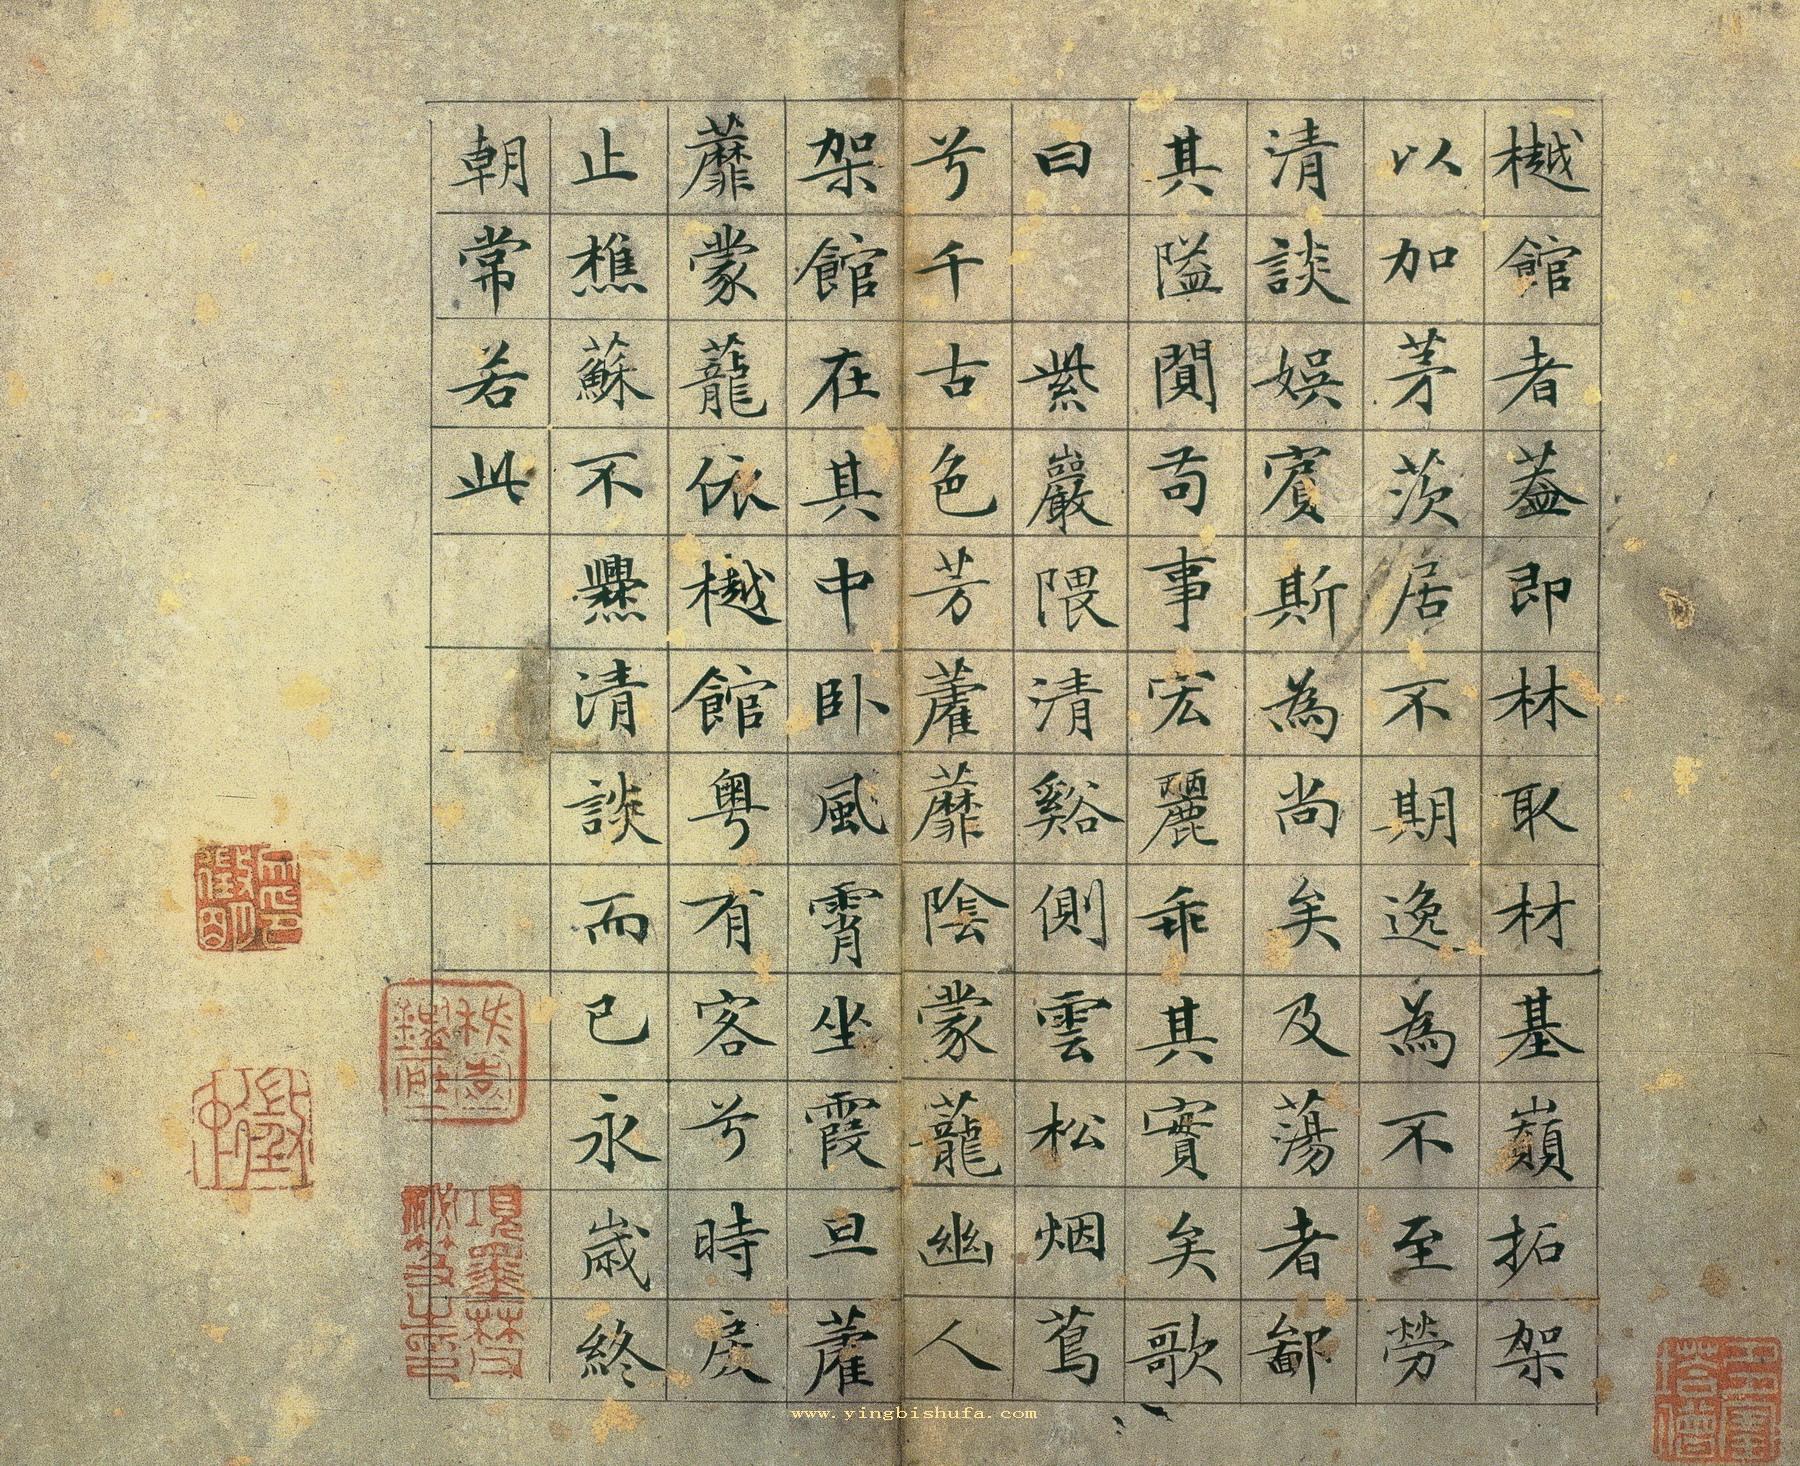 樾館者蓋即林取材基巔拓架
以加茅茨居不期逸為不至勞
清談娛賓斯為尚矣及蕩者鄙
其隘閴苟事宏麗乖其實矣歌
曰 紫巖隈清谿側雲松烟蔦
兮千古色芳藿蘼陰蒙蘢幽人
架館在其中卧風霄坐霞旦藿
蘼蒙蘢依樾館粵有客兮時戾
止樵蘇不爨清談而已永歲終
朝常若此
項墨林父
秘笈之印
www.yingbishufa.com